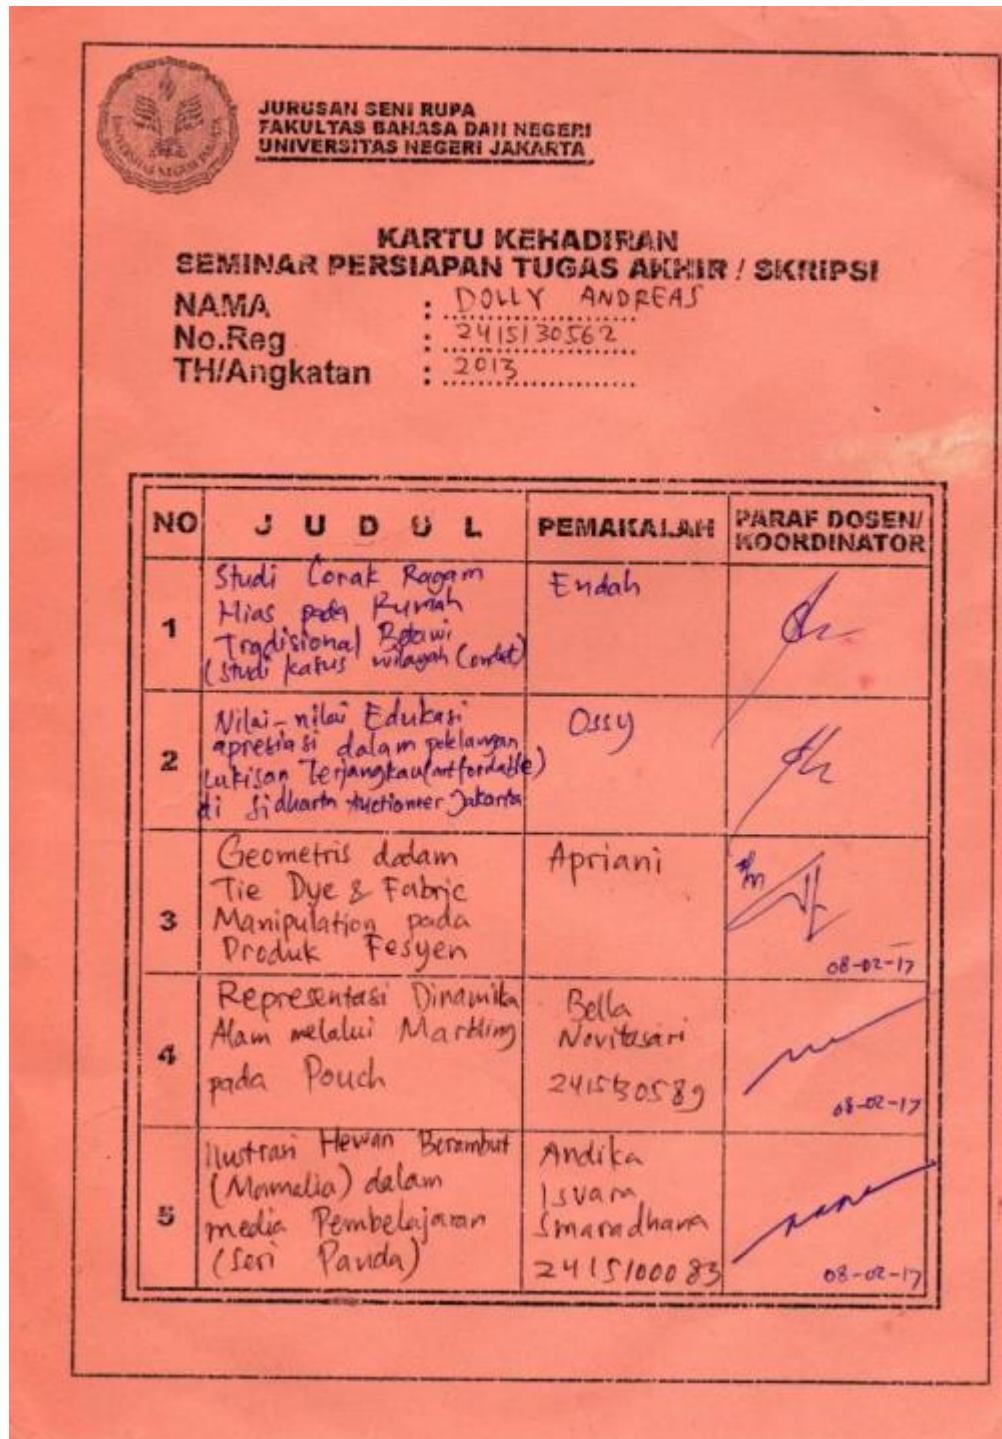 JURUSAN SENI RUPA
FAKULTAS BAHASA DAN NEGERI
UNIVERSITAS NEGERI JAKARTA
UNIVERSITAS NEGERI JAKARTA
KARTU KEHADIRAN
SEMINAR PERSIAPAN TUGAS AKHIR / SKRIPSI
NAMA : DOLLY ANDREAS
No.Reg : 2415130562
TH/Angkatan : 2013
NO J U D U L PEMAKALAH PARAF DOSEN/
KOORDINATOR
1
Studi Corak Ragam
Hias pada Rumah
Tradisional Betawi
(Studi kasus wilayah Condet)
Endah
2
Nilai-nilai Edukasi
apresiasi dalam pelelangan
Lukisan Terjangkau (artfordable)
di Sidharta Auctioneer Jakarta
Ossy
3
Geometris dalam
Tie Dye & Fabric
Manipulation pada
Produk Fesyen
Apriani
08-02-17
4
Representasi Dinamika
Alam melalui Marbling
pada Pouch
Bella
Novitasari
2415130589
08-02-17
5
Ilustrasi Hewan Berambut
(Mamalia) dalam
media Pembelajaran
(Seri Panda)
Andika
Isvara
Smaradhana
2415100083
08-02-17